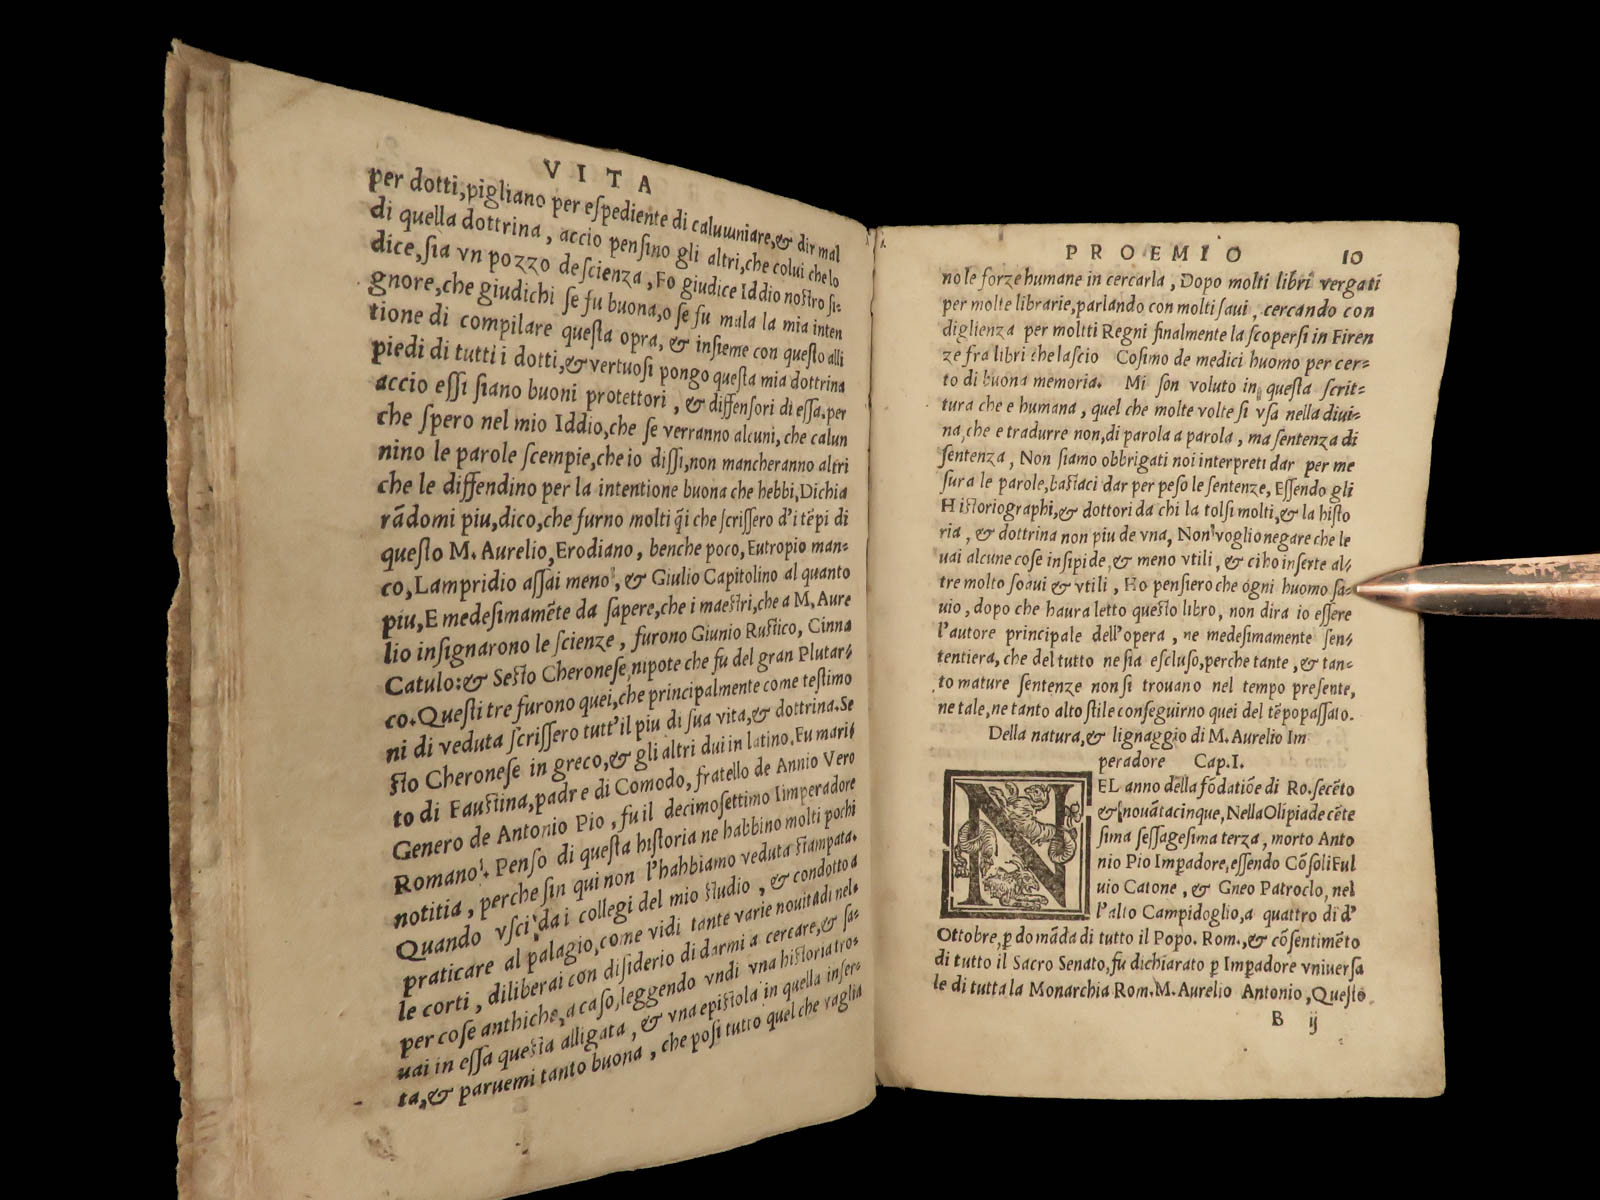 VITA
per dotti, pigliano per eſpediente di caluuniare, & dir mal
di quella dottrina, accio penſino gli altri, che colui che lo
dice, ſia vn pozzo de ſcienza, Fo giudice Iddio noſtro ſi-
gnore, che giudichi ſe fu buona, o ſe fu mala la mia inten
tione di compilare queſta opra, & inſieme con queſto alli
piedi di tutti i dotti, & vertuoſi pongo queſta mia dottrina
accio eſſi ſiano buoni protettori, & diffenſori di eſſa. per
che ſpero nel mio Iddio, che ſe verranno alcuni, che calun
nino le parole ſcempie, che io diſſi, non mancheranno altri
che le diffendino per la intentione buona che hebbi, Dichia
rādomi piu, dico, che furno molti q̄i che ſcriſſero d'i tēpi di
queſto M. Aurelio, Erodiano, benche poco, Eutropio man-
co, Lampridio aſſai meno, & Giulio Capitolino al quanto
piu, E medeſimamēte da ſapere, che i maeſtri, che a M. Aure
lio inſignarono le ſcienze, furono Giunio Ruſtico, Cinna
Catulo: & Seſto Cheroneſe nipote che fu del gran Plutar-
co. Queſti tre furono quei, che principalmente come teſtimo
ni di veduta ſcriſſero tutt'il piu di ſua vita, & dottrina. Se
ſto Cheroneſe in greco, & gli altri dui in latino. Fu mari
to di Fauſtina, padre di Comodo, fratello de Annio Vero
Genero de Antonio Pio, fu il decimoſettimo Iimperadore
Romano. Penſo di queſta hiſtoria ne habbino molti pochi
notitia, perche ſin qui non l'habbiamo veduta ſtampata.
Quando vſci da i collegi del mio ſtudio, & condotto a
praticare al palagio, come vidi tante varie nouitadi nel-
le corti, diliberai con diſiderio di darmi a cercare, & ſa-
per coſe anthiche, a caſo, leggendo vndi vna hiſtoria tro-
uai in eſſa queſta alligata, & vna epiſtola in quella inſer-
ta, & paruemi tanto buona, che poſi tutto quel che vaglia
PROEMIO 10
no le forze humane in cercarla, Dopo molti libri vergati
per molte librarie, parlando con molti ſaui, cercando con
diglienza per moltti Regni finalmente la ſcoperſi in Firen
ze fra libri che laſcio Coſimo de medici huomo per cer-
to di buona memoria. Mi ſon voluto in queſta ſcrit-
tura che e humana, quel che molte volte ſi vſa nella diui-
na, che e tradurre non, di parola a parola, ma ſentenza di
ſentenza, Non ſiamo obbrigati noi interpreti dar per me
ſura le parole, baſtaci dar per peſo le ſentenze, Eſſendo gli
Hiſtoriographi, & dottori da chi la tolſi molti, & la hiſto
ria, & dottrina non piu de vna, Non voglio negare che le
uai alcune coſe inſipide, & meno vtili, & ci ho inſerte al-
tre molto ſoaui & vtili, Ho penſiero che ogni huomo ſa-
uio, dopo che haura letto queſto libro, non dira io eſſere
l'autore principale dell'opera, ne medeſimamente ſen-
tentiera, che del tutto ne ſia eſcluſo, perche tante, & tan-
to mature ſentenze non ſi trouano nel tempo preſente,
ne tale, ne tanto alto ſtile conſeguirno quei del tēpo paſſato.
Della natura, & lignaggio di M. Aurelio Im
peradore Cap. I.
NEL anno della fōdatiōe di Ro. ſecēto
& nouātacinque, Nella Olipiade cēte
ſima ſeſſageſima terza, morto Anto
nio Pio Impadore, eſſendo Cōſoli Ful
uio Catone, & Gneo Patroclo, nel
l'alto Campidoglio, a quattro di d'
Ottobre, ꝑ domāda di tutto il Popo. Rom., & cōſentimēto
di tutto il Sacro Senato, fu dichiarato ꝑ Imꝑadore vniuerſa
le di tutta la Monarchia Rom. M. Aurelio Antonio, Queſto
B ij